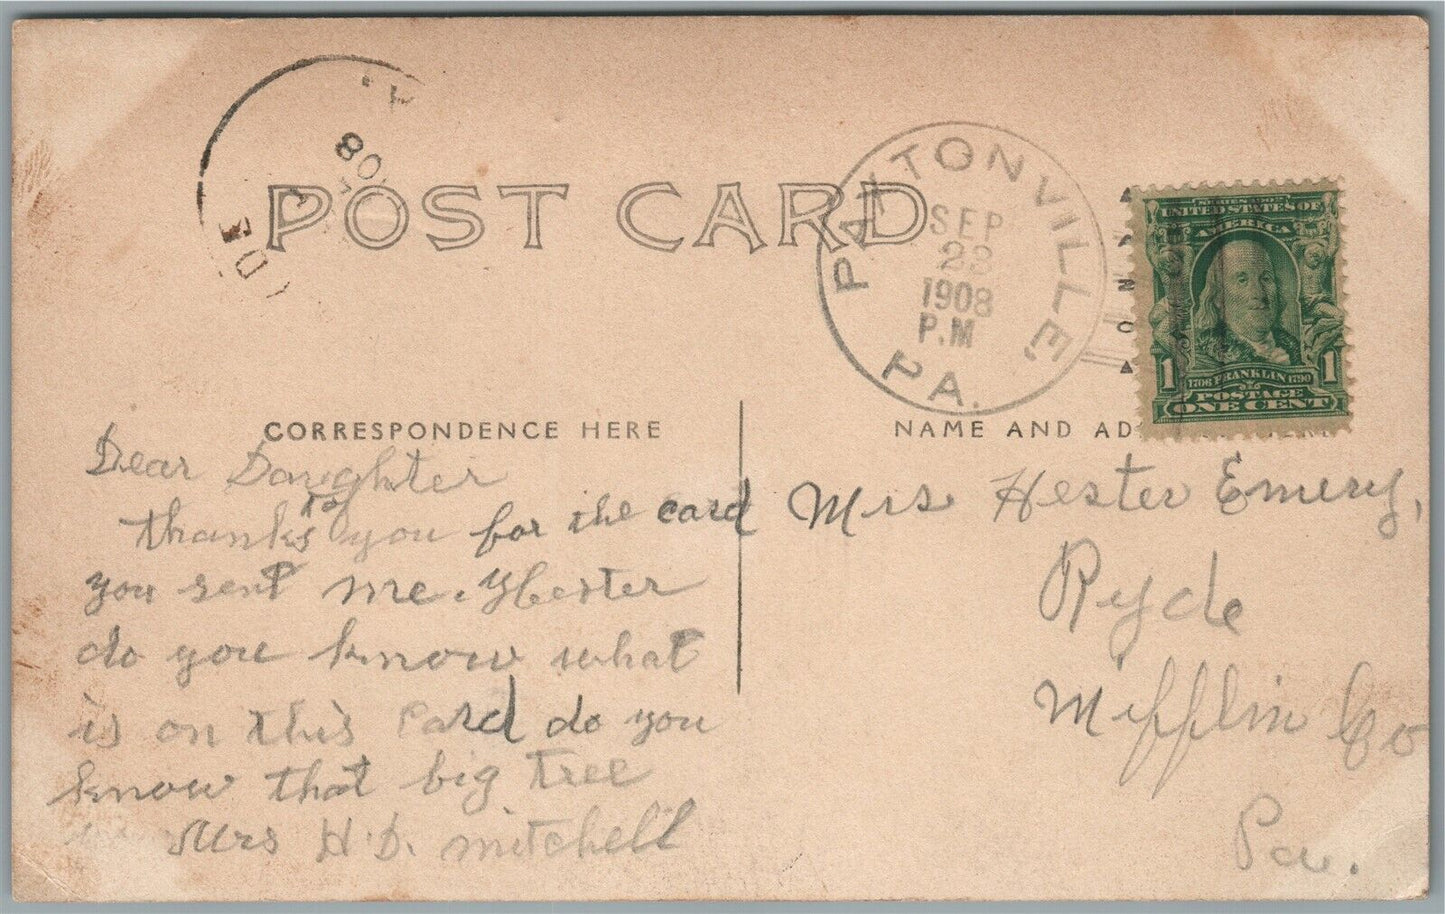 POST CARD
08
PAXTONVILLE,
PA.
SEP
23
1908
P.M
SERIES 1902
UNITED STATES OF
AMERICA
1
1706 FRANKLIN 1790
POSTAGE
ONE CENT
1
CORRESPONDENCE HERE
NAME AND AD
Dear Daughter
thanks to you for the card
you sent me. Hester
do you know what
is on this card do you
know that big tree
Mrs H. D. mitchell
Mrs Hester Emery,
Ryde
Mifflin Co
Pa.